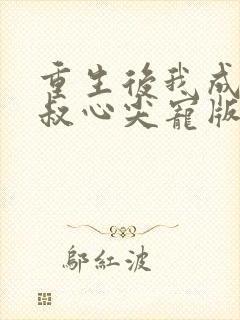 重生後我成
叔心尖寵版
鄔紅波